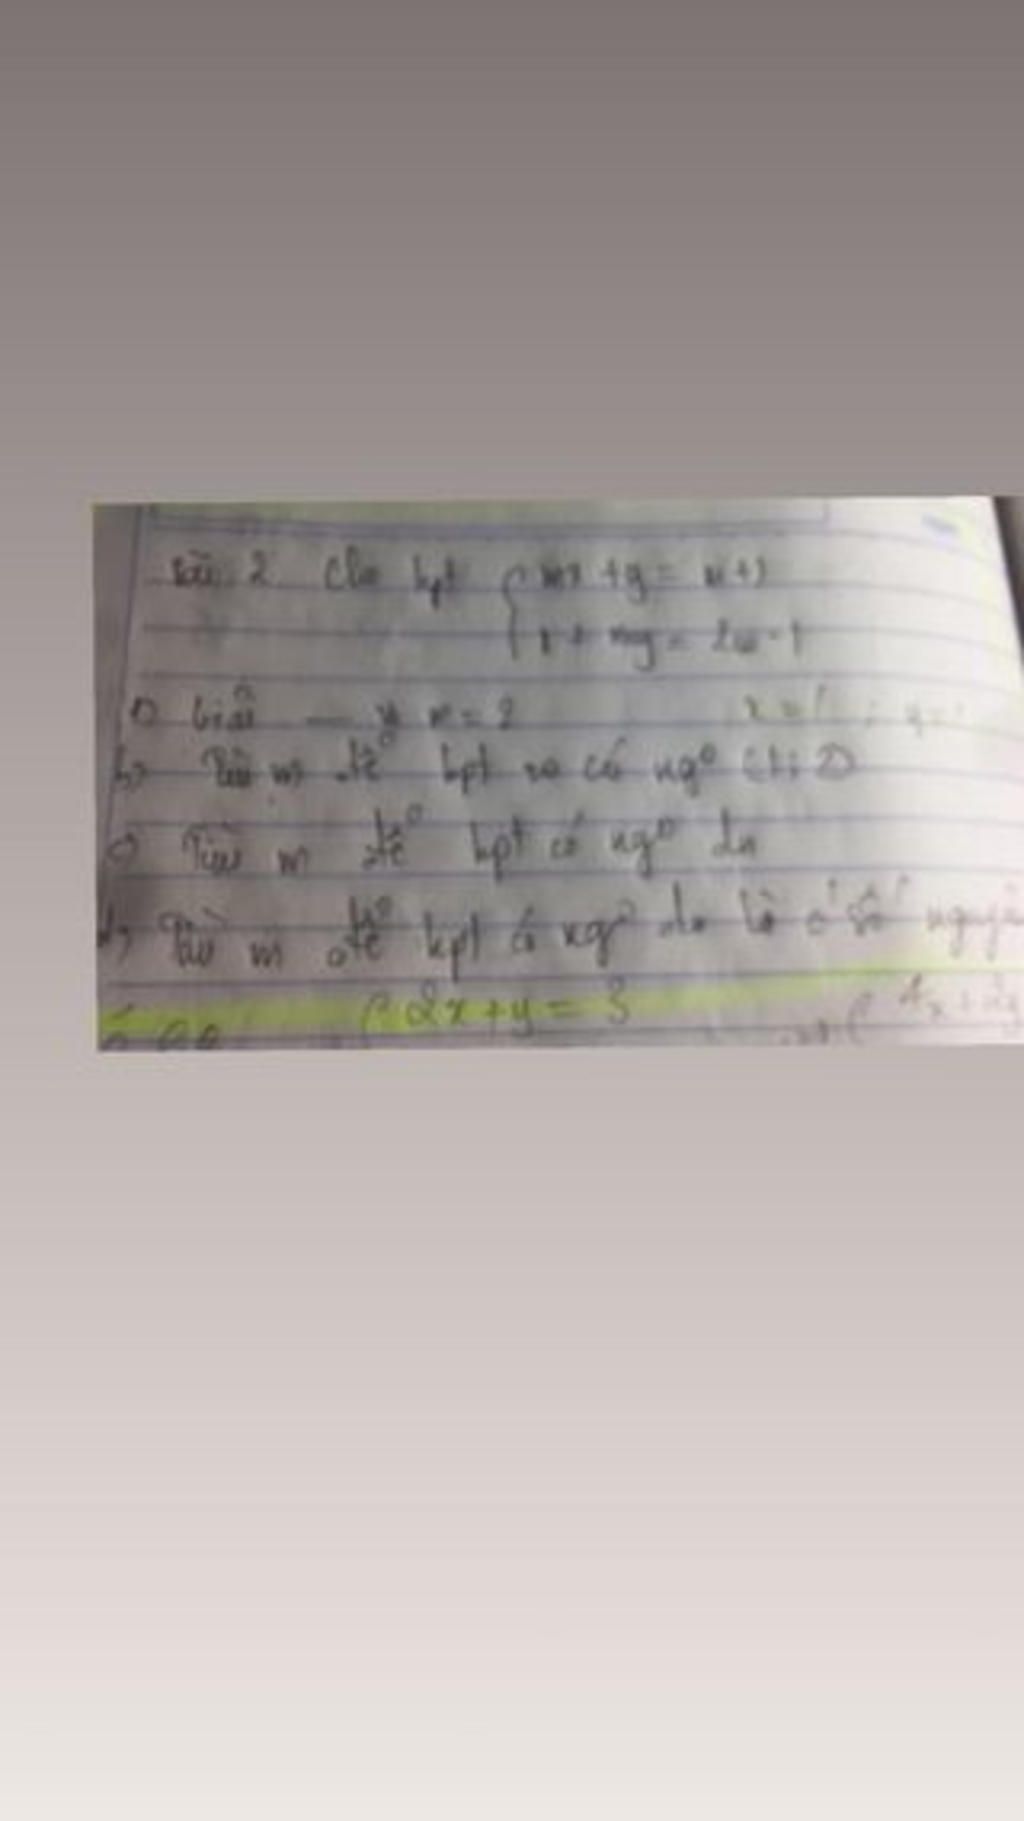 Bài 2 Cho hpt { mx + y = m + 1
x + my = 2m - 1
Giải m = 2 x = 1 ; y =
b) Tìm m để hpt có ngº (1; 2)
c) Tìm m để hpt có ngº dn
d) Tìm m để hpt có ngº là số nguyên
2x + y = 3 4x + 2y